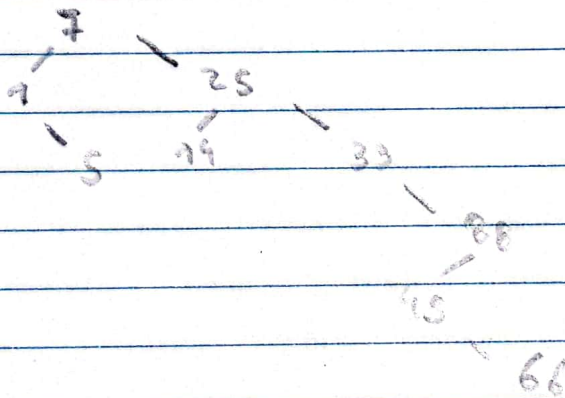 7
1 25
5 14 33
88
45
66